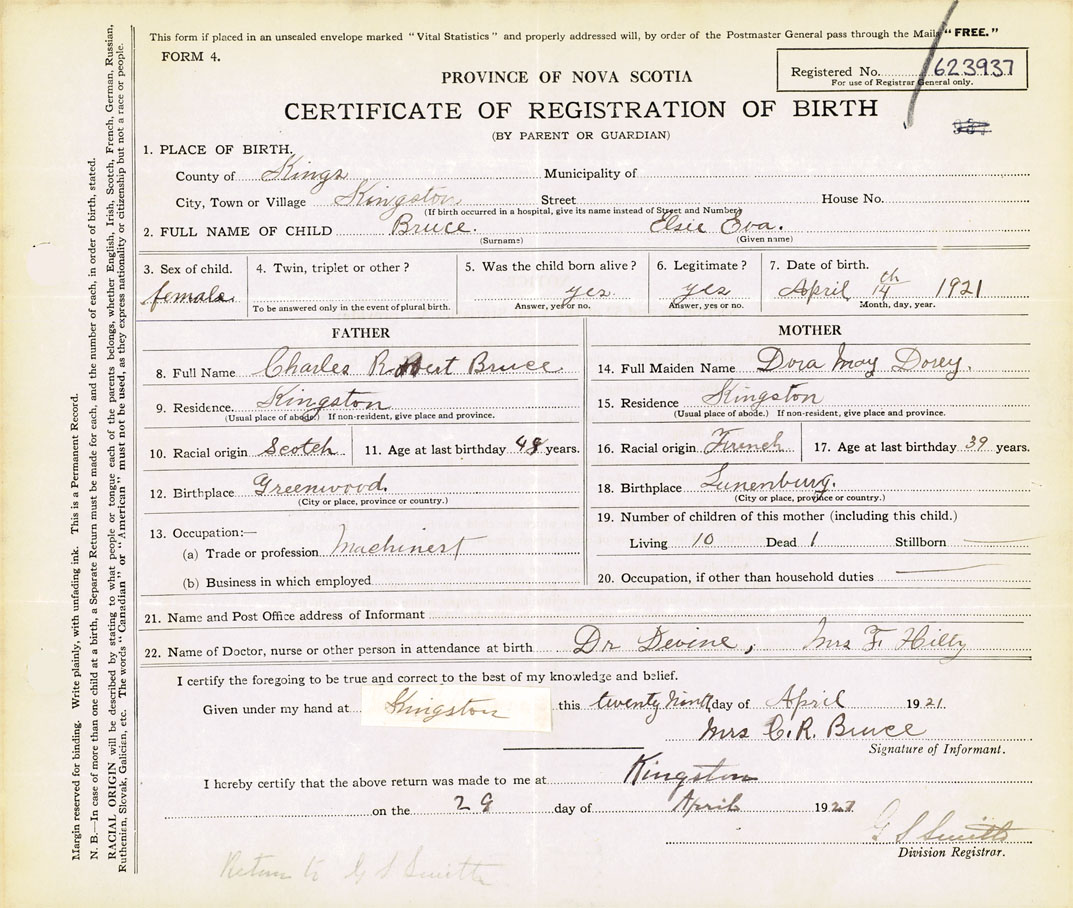 This form if placed in an unsealed envelope marked "Vital Statistics" and properly addressed will, by order of the Postmaster General pass through the Mails "FREE."
FORM 4.
Registered No. 623937
For use of Registrar General only.
PROVINCE OF NOVA SCOTIA
CERTIFICATE OF REGISTRATION OF BIRTH
(BY PARENT OR GUARDIAN)
1. PLACE OF BIRTH.
County of Kings Municipality of
City, Town or Village Kingston Street House No.
(If birth occurred in a hospital, give its name instead of Street and Number)
2. FULL NAME OF CHILD Bruce. Elsie Eva.
(Surname) (Given name)
3. Sex of child. 4. Twin, triplet or other? 5. Was the child born alive? 6. Legitimate? 7. Date of birth.
female yes yes April 14th 1921
To be answered only in the event of plural birth. Answer, yes or no. Answer, yes or no. Month, day, year.
FATHER
8. Full Name Charles Robert Bruce
9. Residence. Kingston
(Usual place of abode.) If non-resident, give place and province.
10. Racial origin Scotch 11. Age at last birthday 48 years.
12. Birthplace Greenwood.
(City or place, province or country.)
13. Occupation:—
(a) Trade or profession Machinest
(b) Business in which employed
MOTHER
14. Full Maiden Name Dora May Dorey.
15. Residence Kingston
(Usual place of abode.) If non-resident, give place and province.
16. Racial origin French 17. Age at last birthday 39 years.
18. Birthplace Lunenburg.
(City or place, province or country.)
19. Number of children of this mother (including this child.)
Living 10 Dead 1 Stillborn
20. Occupation, if other than household duties
21. Name and Post Office address of Informant
22. Name of Doctor, nurse or other person in attendance at birth Dr Devine, Mrs F. Hilly
I certify the foregoing to be true and correct to the best of my knowledge and belief.
Given under my hand at Kingston this twenty Ninth day of April 1921.
Mrs C. R. Bruce
Signature of Informant.
I hereby certify that the above return was made to me at Kingston
on the 29 day of April 1921
G S Smith
Division Registrar.
Return to G S Smith
Margin reserved for binding. Write plainly, with unfading ink. This is a Permanent Record.
N. B.—In case of more than one child at a birth, a Separate Return must be made for each, and the number of each, in order of birth, stated.
RACIAL ORIGIN will be described by stating to what people or tongue each of the parents belongs, whether English, Irish, Scotch, French, German, Russian,
Ruthenian, Slovak, Galician, etc. The words "Canadian" or "American" must not be used, as they express nationality or citizenship but not a race or people.